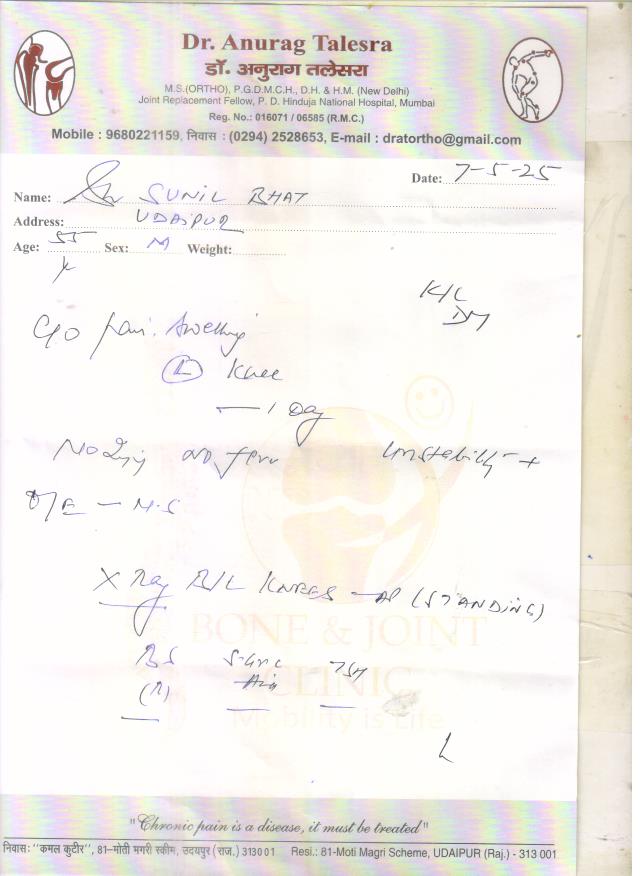 Dr. Anurag Talesra
डॉ. अनुराग तलेसरा
M.S.(ORTHO), P.G.D.M.C.H., D.H. & H.M. (New Delhi)
Joint Replacement Fellow, P. D. Hinduja National Hospital, Mumbai
Reg. No.: 016071 / 06585 (R.M.C.)
Mobile : 9680221159, निवास : (0294) 2528653, E-mail : dratortho@gmail.com
Date: 7-5-25
Name: SUNIL BHAT
Address: UDAIPUR
Age: 55 Sex: M Weight:
K/C
DM
C/O pain. Swelling
(L) Knee
— 1 Day
No injury no fever unstability +
O/E — N.S
X Ray B/L KNEES — AP (STANDING)
BONE & JOINT
BS S. Uric TSH
CLINIC
(R) Acid
Mobility is Life
"Chronic pain is a disease, it must be treated"
निवास: "कमल कुटीर", 81-मोती मगरी स्कीम, उदयपुर (राज.) 313001 Resi.: 81-Moti Magri Scheme, UDAIPUR (Raj.) - 313 001